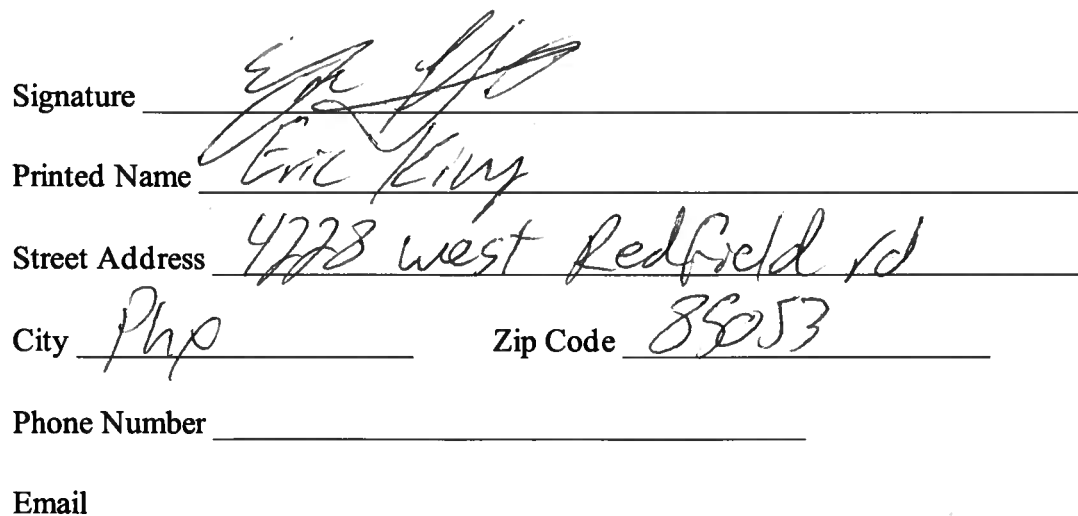 Signature
Printed Name Eric King
Street Address 4228 west Redfield rd
City Phx Zip Code 85053
Phone Number
Email